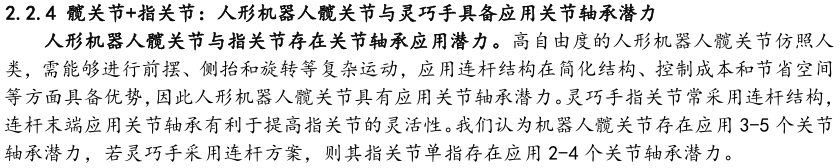 2.2.4 髋关节+指关节：人形机器人髋关节与灵巧手具备应用关节轴承潜力
人形机器人髋关节与指关节存在关节轴承应用潜力。高自由度的人形机器人髋关节仿照人
类，需能够进行前摆、侧抬和旋转等复杂运动，应用连杆结构在简化结构、控制成本和节省空间
等方面具备优势，因此人形机器人髋关节具有应用关节轴承潜力。灵巧手指关节常采用连杆结构，
连杆末端应用关节轴承有利于提高指关节的灵活性。我们认为机器人髋关节存在应用 3-5 个关节
轴承潜力，若灵巧手采用连杆方案，则其指关节单指存在应用 2-4 个关节轴承潜力。